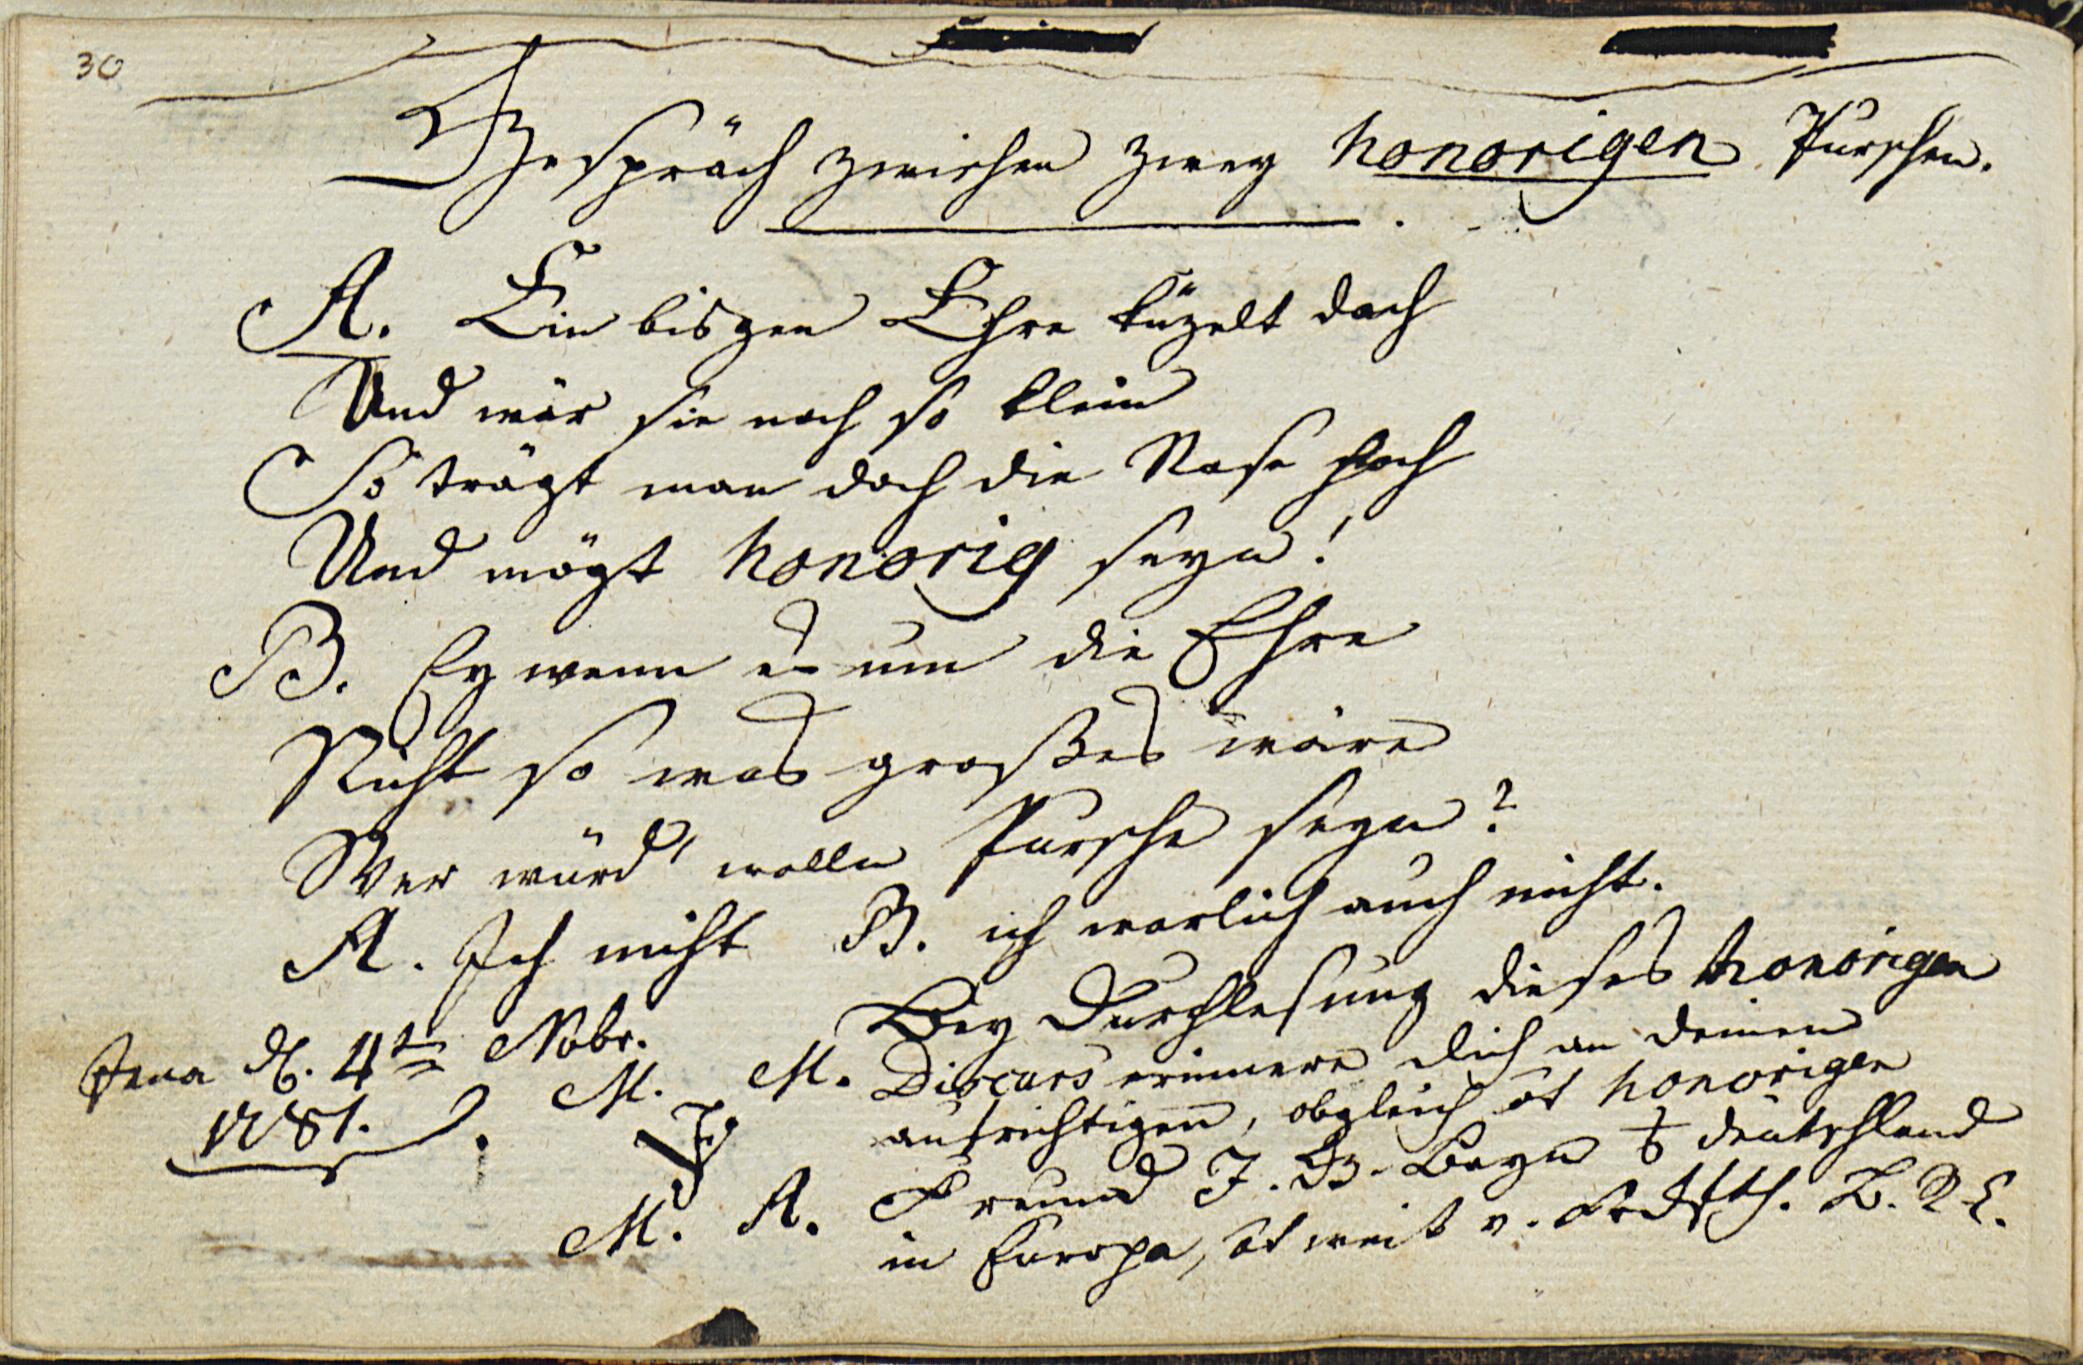 30
Gespräch zwischen zwey honorigen Purschen.
A. Ein bisgen Ehre küzelt doch
Und wär sie noch so klein
So trägt man doch die Nase hoch
Und mögt honorig seyn!
B. Ey wenn es um die Ehre
Nicht so was großes wäre
Wer würd' wolln Pursche seyn?
A. Ich nicht B. ich warlich auch nicht.
Jena d. 4ten Nobr.
1781.
M. M.
J.
M. A.
Bey Durchlesung dieses honorigen
Discurs erinnere dich an deinen
aufrichtigen, obgleich nicht honorigen
Freund J. G. Beyn Deutschland
in Europa, nicht weit v.